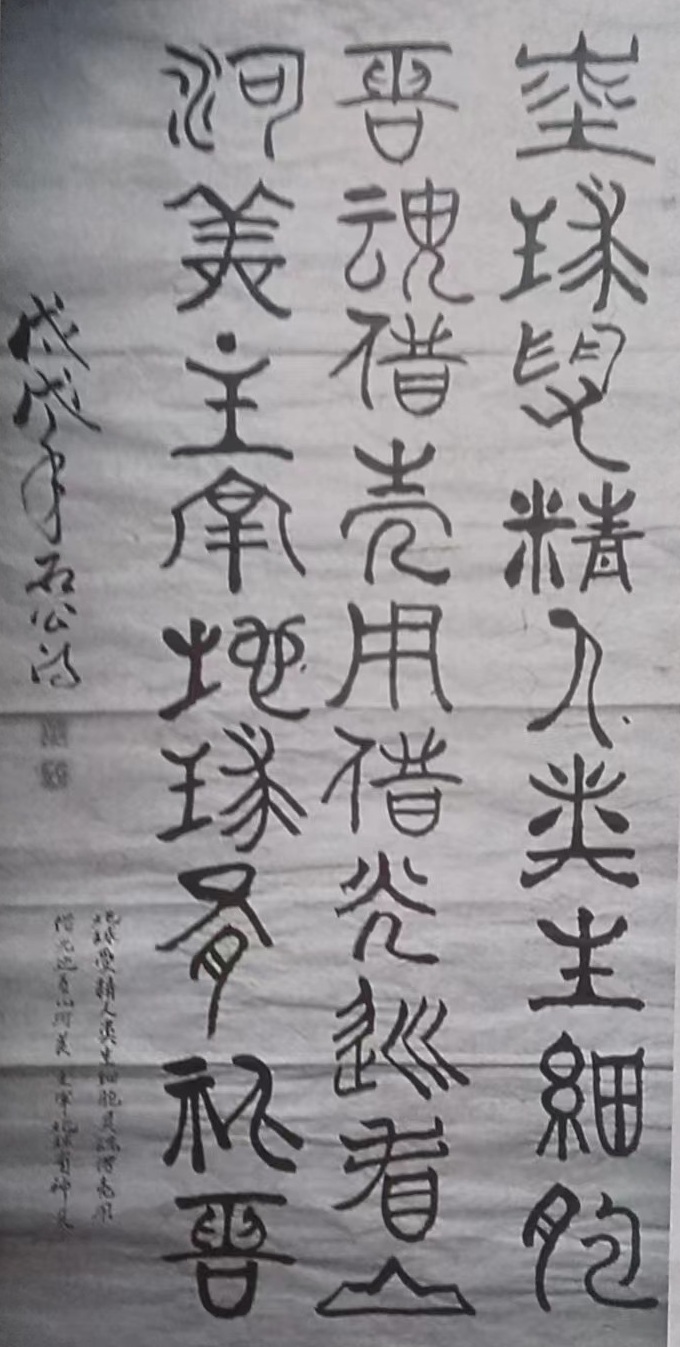 地球受精人类生细胞
灵魂借壳用借光巡看山
河美主宰地球有神灵
戊戌年石公
地球受精人类生细胞灵魂借壳用
借光巡看山河美 主宰地球有神灵